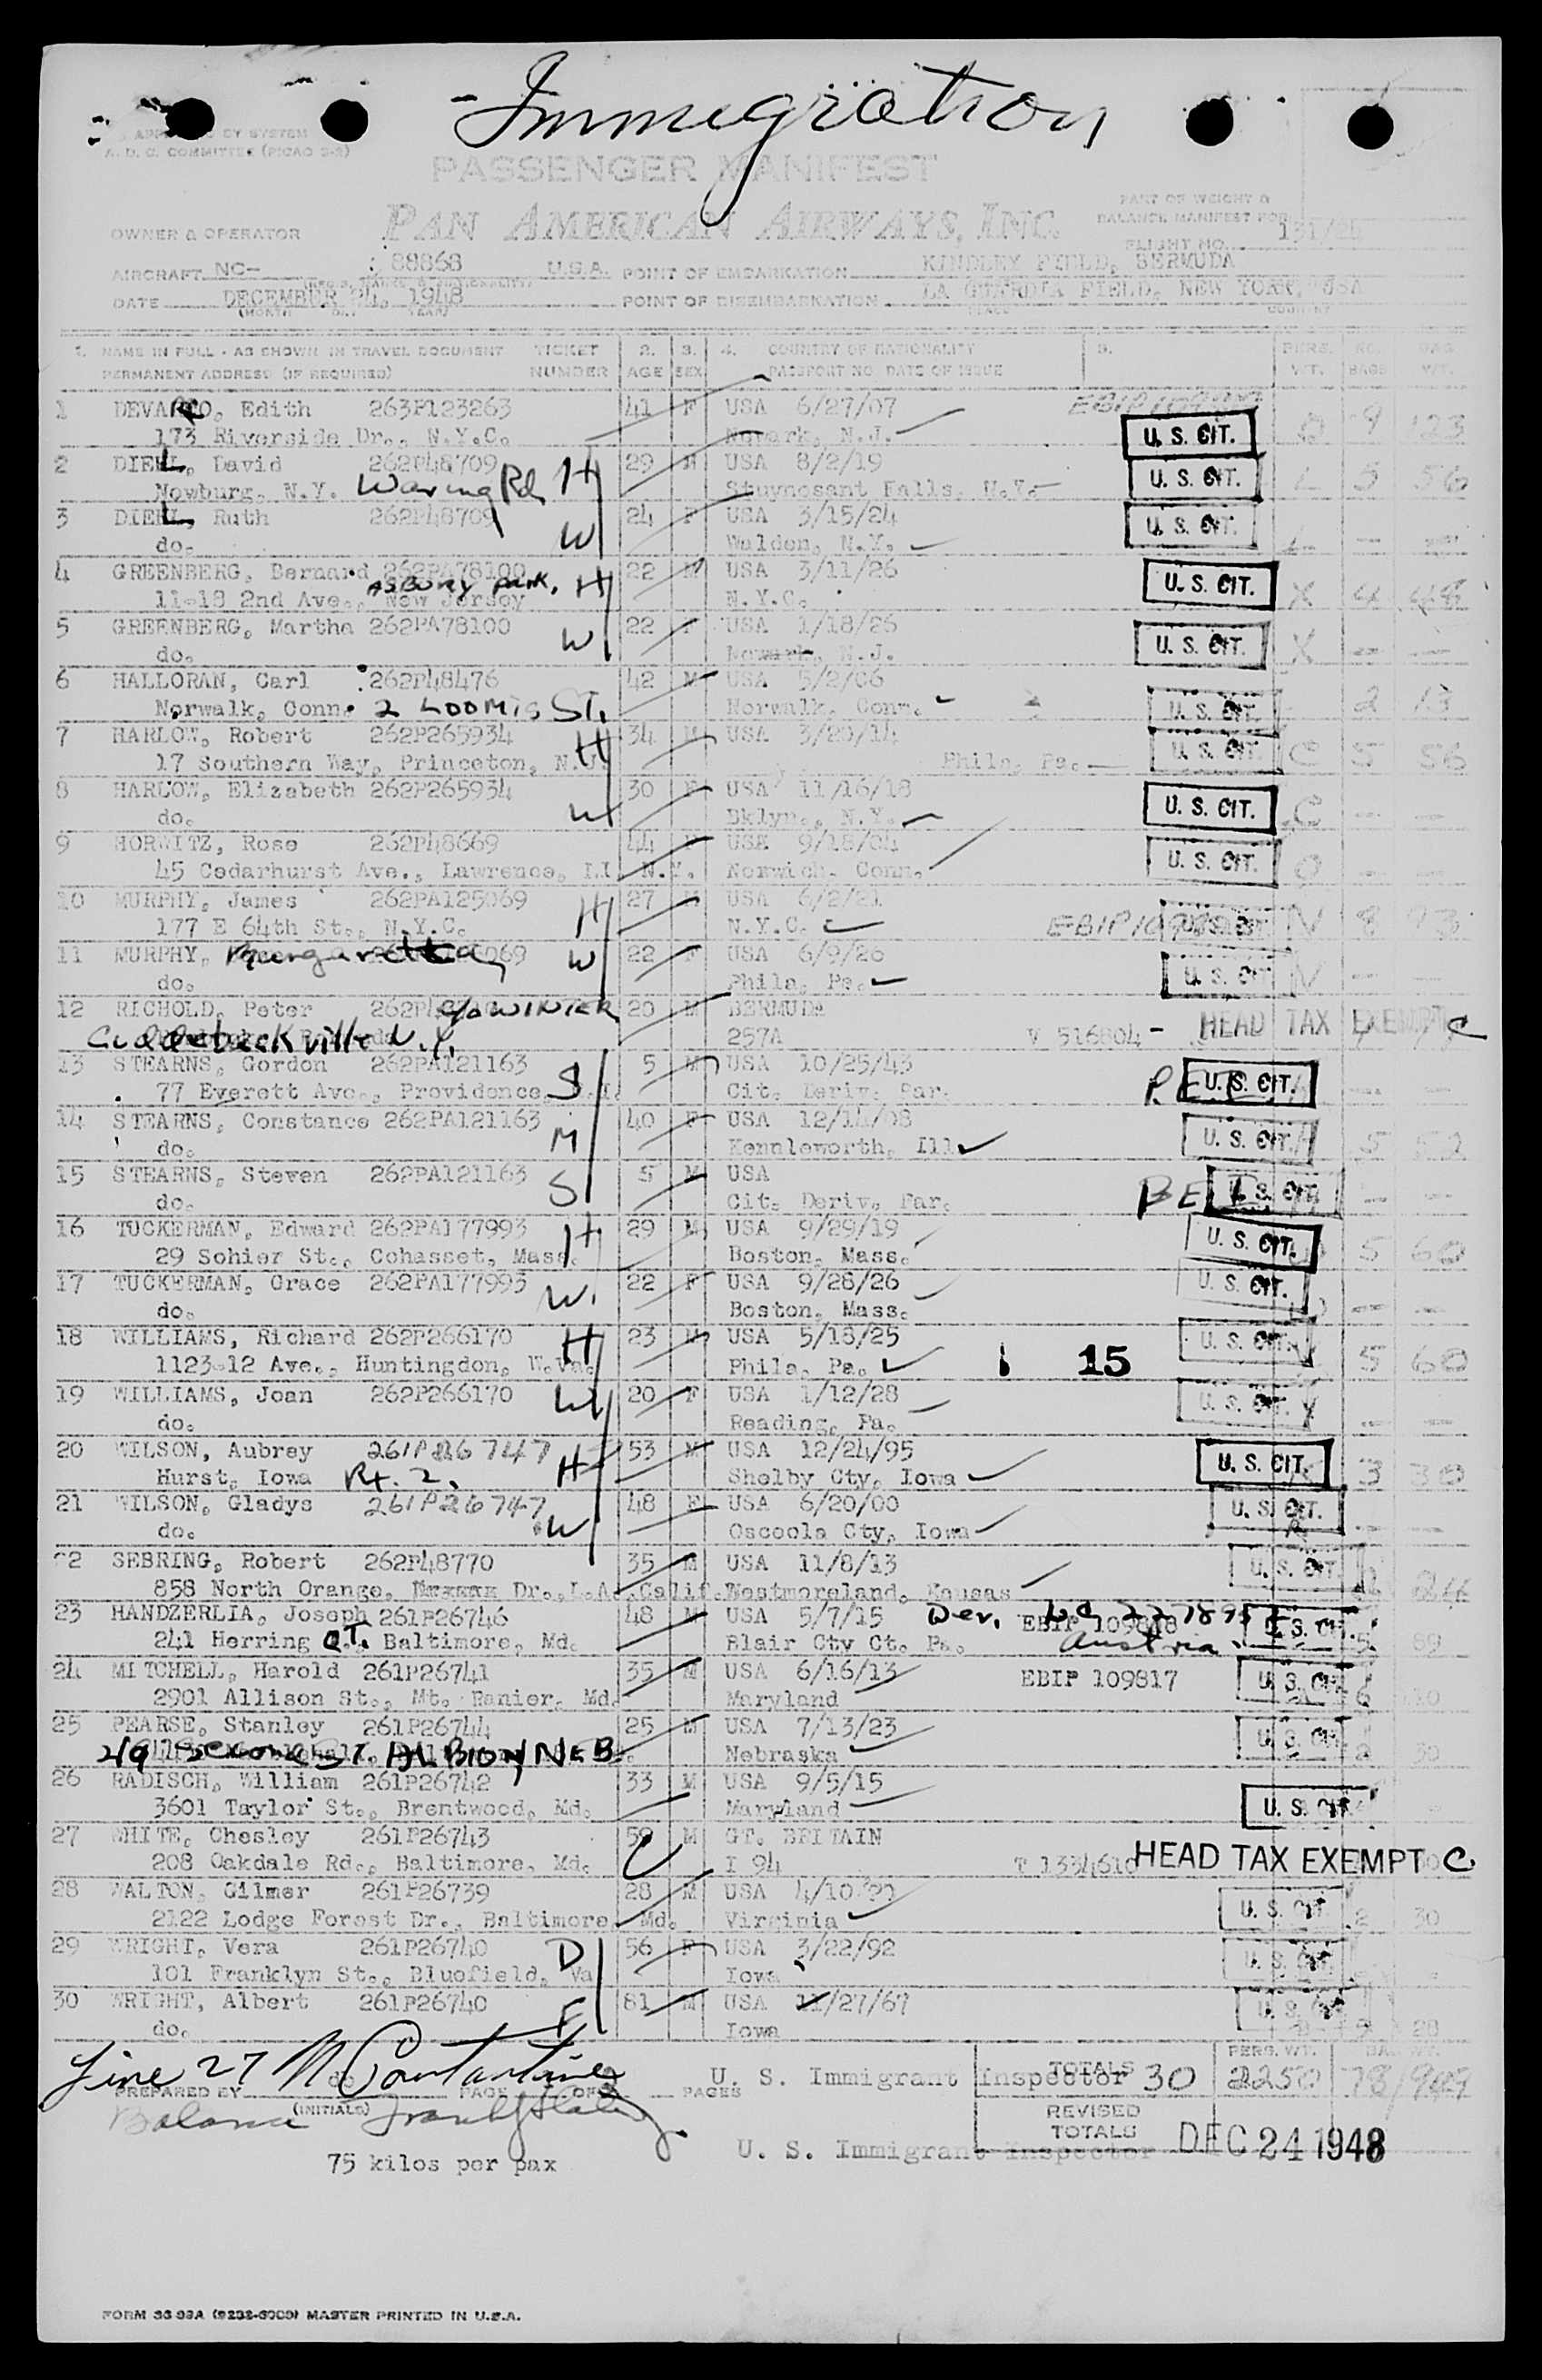 Immigration
APPROVED BY SYSTEM
A. D. C. COMMITTEE (PICAO 2-2)
PASSENGER MANIFEST
PART OF WEIGHT &
BALANCE MANIFEST FOR
OWNER & OPERATOR PAN AMERICAN AIRWAYS, INC.
FLIGHT NO. 131/24
AIRCRAFT NC- 88868 U.S.A. POINT OF EMBARKATION KINDLEY FIELD, BERMUDA
DATE DECEMBER 24, 1948 POINT OF DISEMBARKATION LA GUARDIA FIELD, NEW YORK, USA
(MONTH DAY YEAR) PLACE COUNTRY
1. NAME IN FULL - AS SHOWN IN TRAVEL DOCUMENT TICKET 2. 3. 4. COUNTRY OF NATIONALITY 5. PERS. NO. BAG.
PERMANENT ADDRESS (IF REQUIRED) NUMBER AGE SEX PASSPORT NO. DATE OF ISSUE WT. BAGS WT.
1 Edith 263P123263 41 F USA 6/27/07 9 123
173 Riverside Dr., N.Y.C. Newark, N.J. U. S. CIT.
2 DIEHL, David 262P48709 H 29 M USA 8/2/19 U. S. CIT. L 5 56
Newburg, N.Y. Waring Rd Stuyvesant Falls, N.Y.
3 DIEHL, Ruth 262P48709 24 F USA 3/15/24 U. S. CIT.
do. W Walden, N.Y. L — —
4 GREENBERG, Bernard 262PA78100 22 M USA 3/11/26 U. S. CIT.
11-18 2nd Ave., New Jersey ASBURY PARK, H N.Y.C. X 4 48
5 GREENBERG, Martha 262PA78100 W 22 F USA 1/18/26 U. S. CIT.
do. Newark, N.J. X — —
6 HALLORAN, Carl 262P48476 42 M USA 5/2/06
Norwalk, Conn. 2 LOOMIS ST. Norwalk, Conn. U. S. CIT. 2 13
7 HARLOW, Robert 262P265934 H 34 M USA 3/20/14 U. S. CIT.
17 Southern Way, Princeton, N.J. Phila, Pa. C 5 56
8 HARLOW, Elizabeth 262P265934 30 F USA 11/16/18 U. S. CIT.
do. W Bklyn., N.Y. C — —
9 HORWITZ, Rose 262P48669 44 F USA 9/18/04 U. S. CIT.
45 Cedarhurst Ave., Lawrence, LI N.Y. Norwich, Conn. O — —
10 MURPHY, James 262PA125069 27 M USA 6/2/21
177 E 64th St., N.Y.C. H N.Y.C. U. S. CIT. N 8 93
11 MURPHY, Margaretta W 22 F USA 6/9/26
do. Phila, Pa. U. S. CIT. N — —
12 RICHOLD, Peter c/o WINTER 20 M BERMUDA
Cuddebackville N.Y. 257A V 516804 - HEAD TAX EXEMPT C
13 STEARNS, Gordon 262PA121163 5 M USA 10/25/43
77 Everett Ave., Providence, R.I. S Cit. Deriv. Par. U. S. CIT. — —
14 STEARNS, Constance 262PA121163 40 F USA 12/14/08
do. M Kennleworth, Ill U. S. CIT. 5 52
15 STEARNS, Steven 262PA121163 5 M USA
do. S Cit. Deriv. Par. U. S. CIT. — —
16 TUCKERMAN, Edward 262PA177993 H 29 M USA 9/29/19
29 Sohier St., Cohasset, Mass. Boston, Mass. U. S. CIT. 5 60
17 TUCKERMAN, Grace 262PA177993 W. 22 F USA 9/28/26 U. S. CIT.
do. Boston, Mass. — —
18 WILLIAMS, Richard 262P266170 H 23 M USA 5/18/25 U. S. CIT.
1123-12 Ave., Huntingdon, W.Va. Phila, Pa. 15 5 60
19 WILLIAMS, Joan 262P266170 W 20 F USA 1/12/28 U. S. CIT.
do. Reading, Pa. — —
20 WILSON, Aubrey 261P26747 53 M USA 12/24/95 U. S. CIT.
Hurst, Iowa Rt. 2. H Shelby Cty, Iowa 3 30
21 WILSON, Gladys 261P26747 W 48 F USA 6/20/00 U. S. CIT.
do. Osceola Cty, Iowa — —
22 SEBRING, Robert 262P48770 35 M USA 11/8/13 U. S. CIT.
858 North Orange, Dr., L.A. Calif. Westmoreland, Kansas 24
23 HANDZERLIA, Joseph 261P26746 48 M USA 5/7/15 Der. EBIP 109818 U. S. CIT.
241 Herring CT. Baltimore, Md. Blair Cty Ct. Pa. Austria 5 89
24 MITCHELL, Harold 261P26741 35 M USA 6/16/13 EBIP 109817 U. S. CIT.
2901 Allison St., Mt. Ranier, Md. Maryland 6
25 PEARSE, Stanley 261P26744 25 M USA 7/13/23 U. S. CIT.
219 Second ST. ALBION, NEB. Nebraska 2 30
26 RADISCH, William 261P26742 33 M USA 9/5/15
3601 Taylor St., Brentwood, Md. Maryland U. S. CIT.
27 WHITE, Chesley 261P26743 59 M GT. BRITAIN
208 Oakdale Rd., Baltimore, Md. I 94 T 1334610 HEAD TAX EXEMPT C
28 WALTON, Gilmer 261P26739 28 M USA 4/10/20 U. S. CIT.
2122 Lodge Forest Dr., Baltimore, Md. Virginia 2 30
29 WRIGHT, Vera 261P26740 D 56 F USA 3/22/92 U. S. CIT.
101 Franklyn St., Bluefield, Va Iowa
30 WRIGHT, Albert 261P26740 F 81 M USA 11/27/67 U. S. CIT.
do. Iowa 28
Line 27 U. S. Immigrant Inspector TOTALS 30 PERS. WT. 2250 78/949
PREPARED BY PAGE OF PAGES
(INITIALS) REVISED TOTALS
U. S. Immigrant Inspector DEC 24 1948
75 kilos per pax
FORM 36 99A (9232-6000) MASTER PRINTED IN U.S.A.